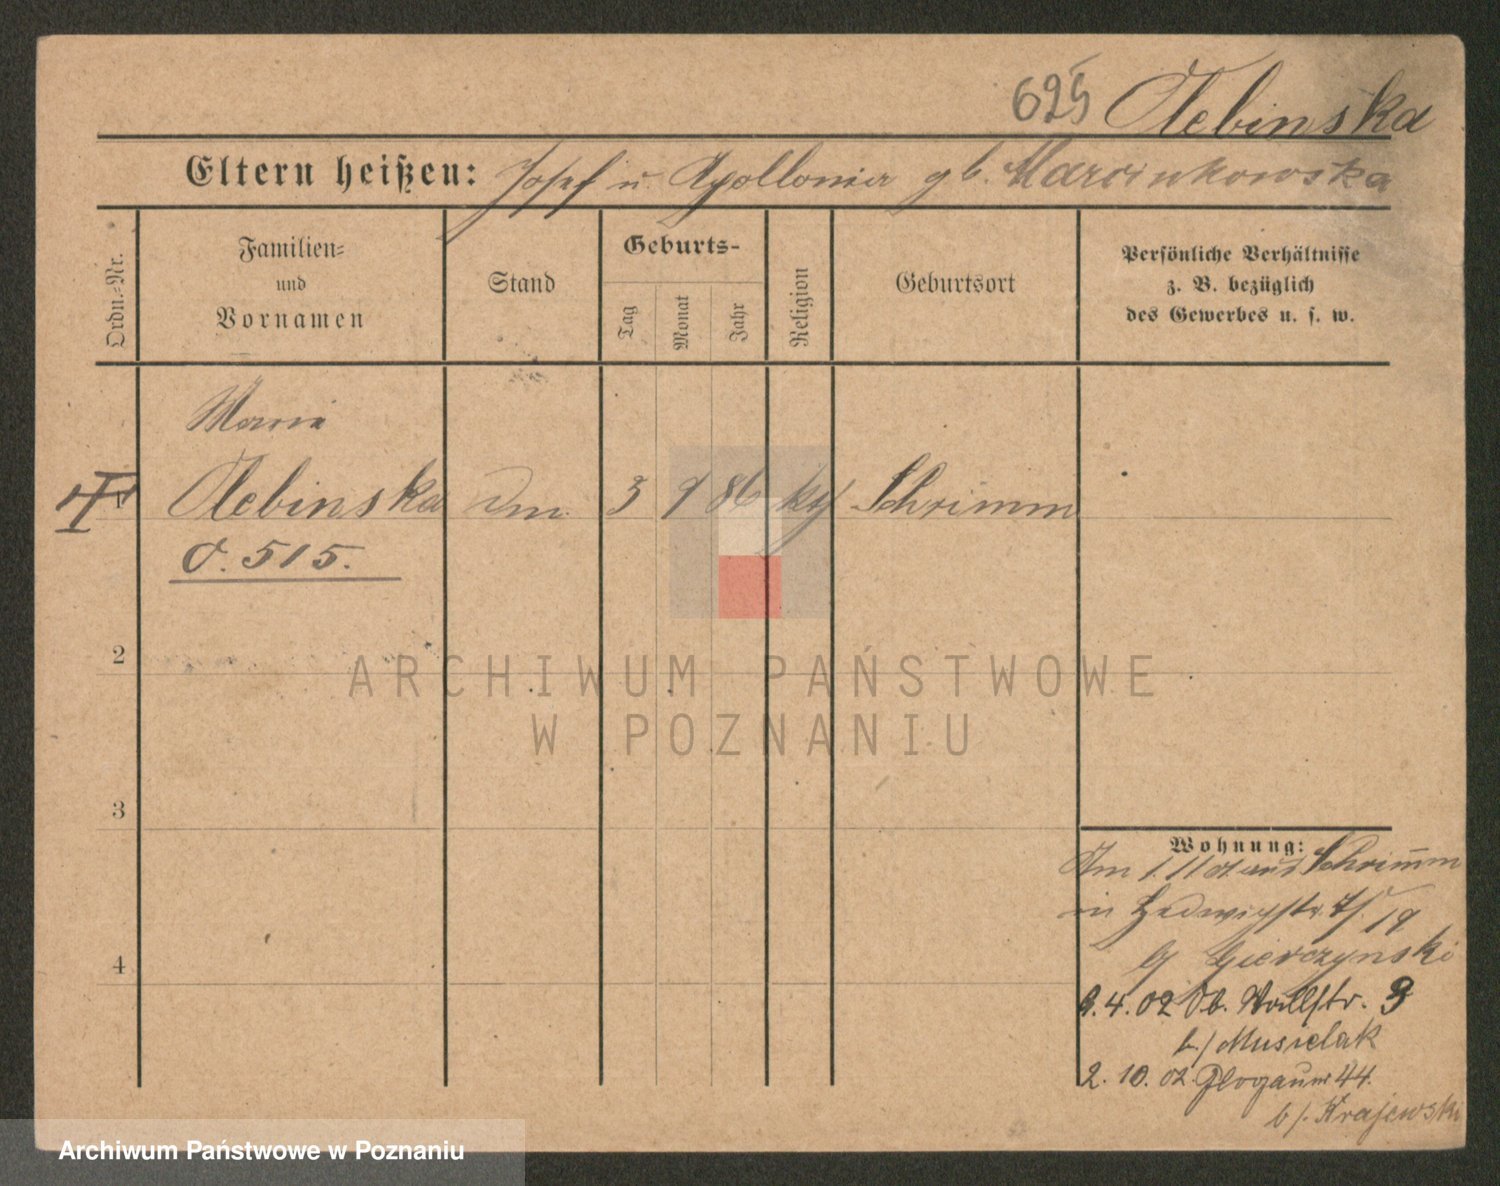 625 Clebinska
Eltern heißen: Josef u. Apollonia gb. Marcinkowska
Ordn.-Nr.
Familien-
und
Vornamen
Stand
Geburts-
Tag
Monat
Jahr
Religion
Geburtsort
Persönliche Verhältnisse
z. B. bezüglich
des Gewerbes u. s. w.
Maria
1 Clebinska 3 9 86 kth Schrimm
C. 515.
2
3
4
Wohnung:
Am 1/11 01 aus Schrimm
in Hedwigstr. 19
Gierczynski
9.4.02 Ob. Wallstr. 3
b/ Musielak
2. 10. 02. Glogauer 44.
b/. Krajewski
ARCHIWUM PAŃSTWOWE
W POZNANIU
Archiwum Państwowe w Poznaniu